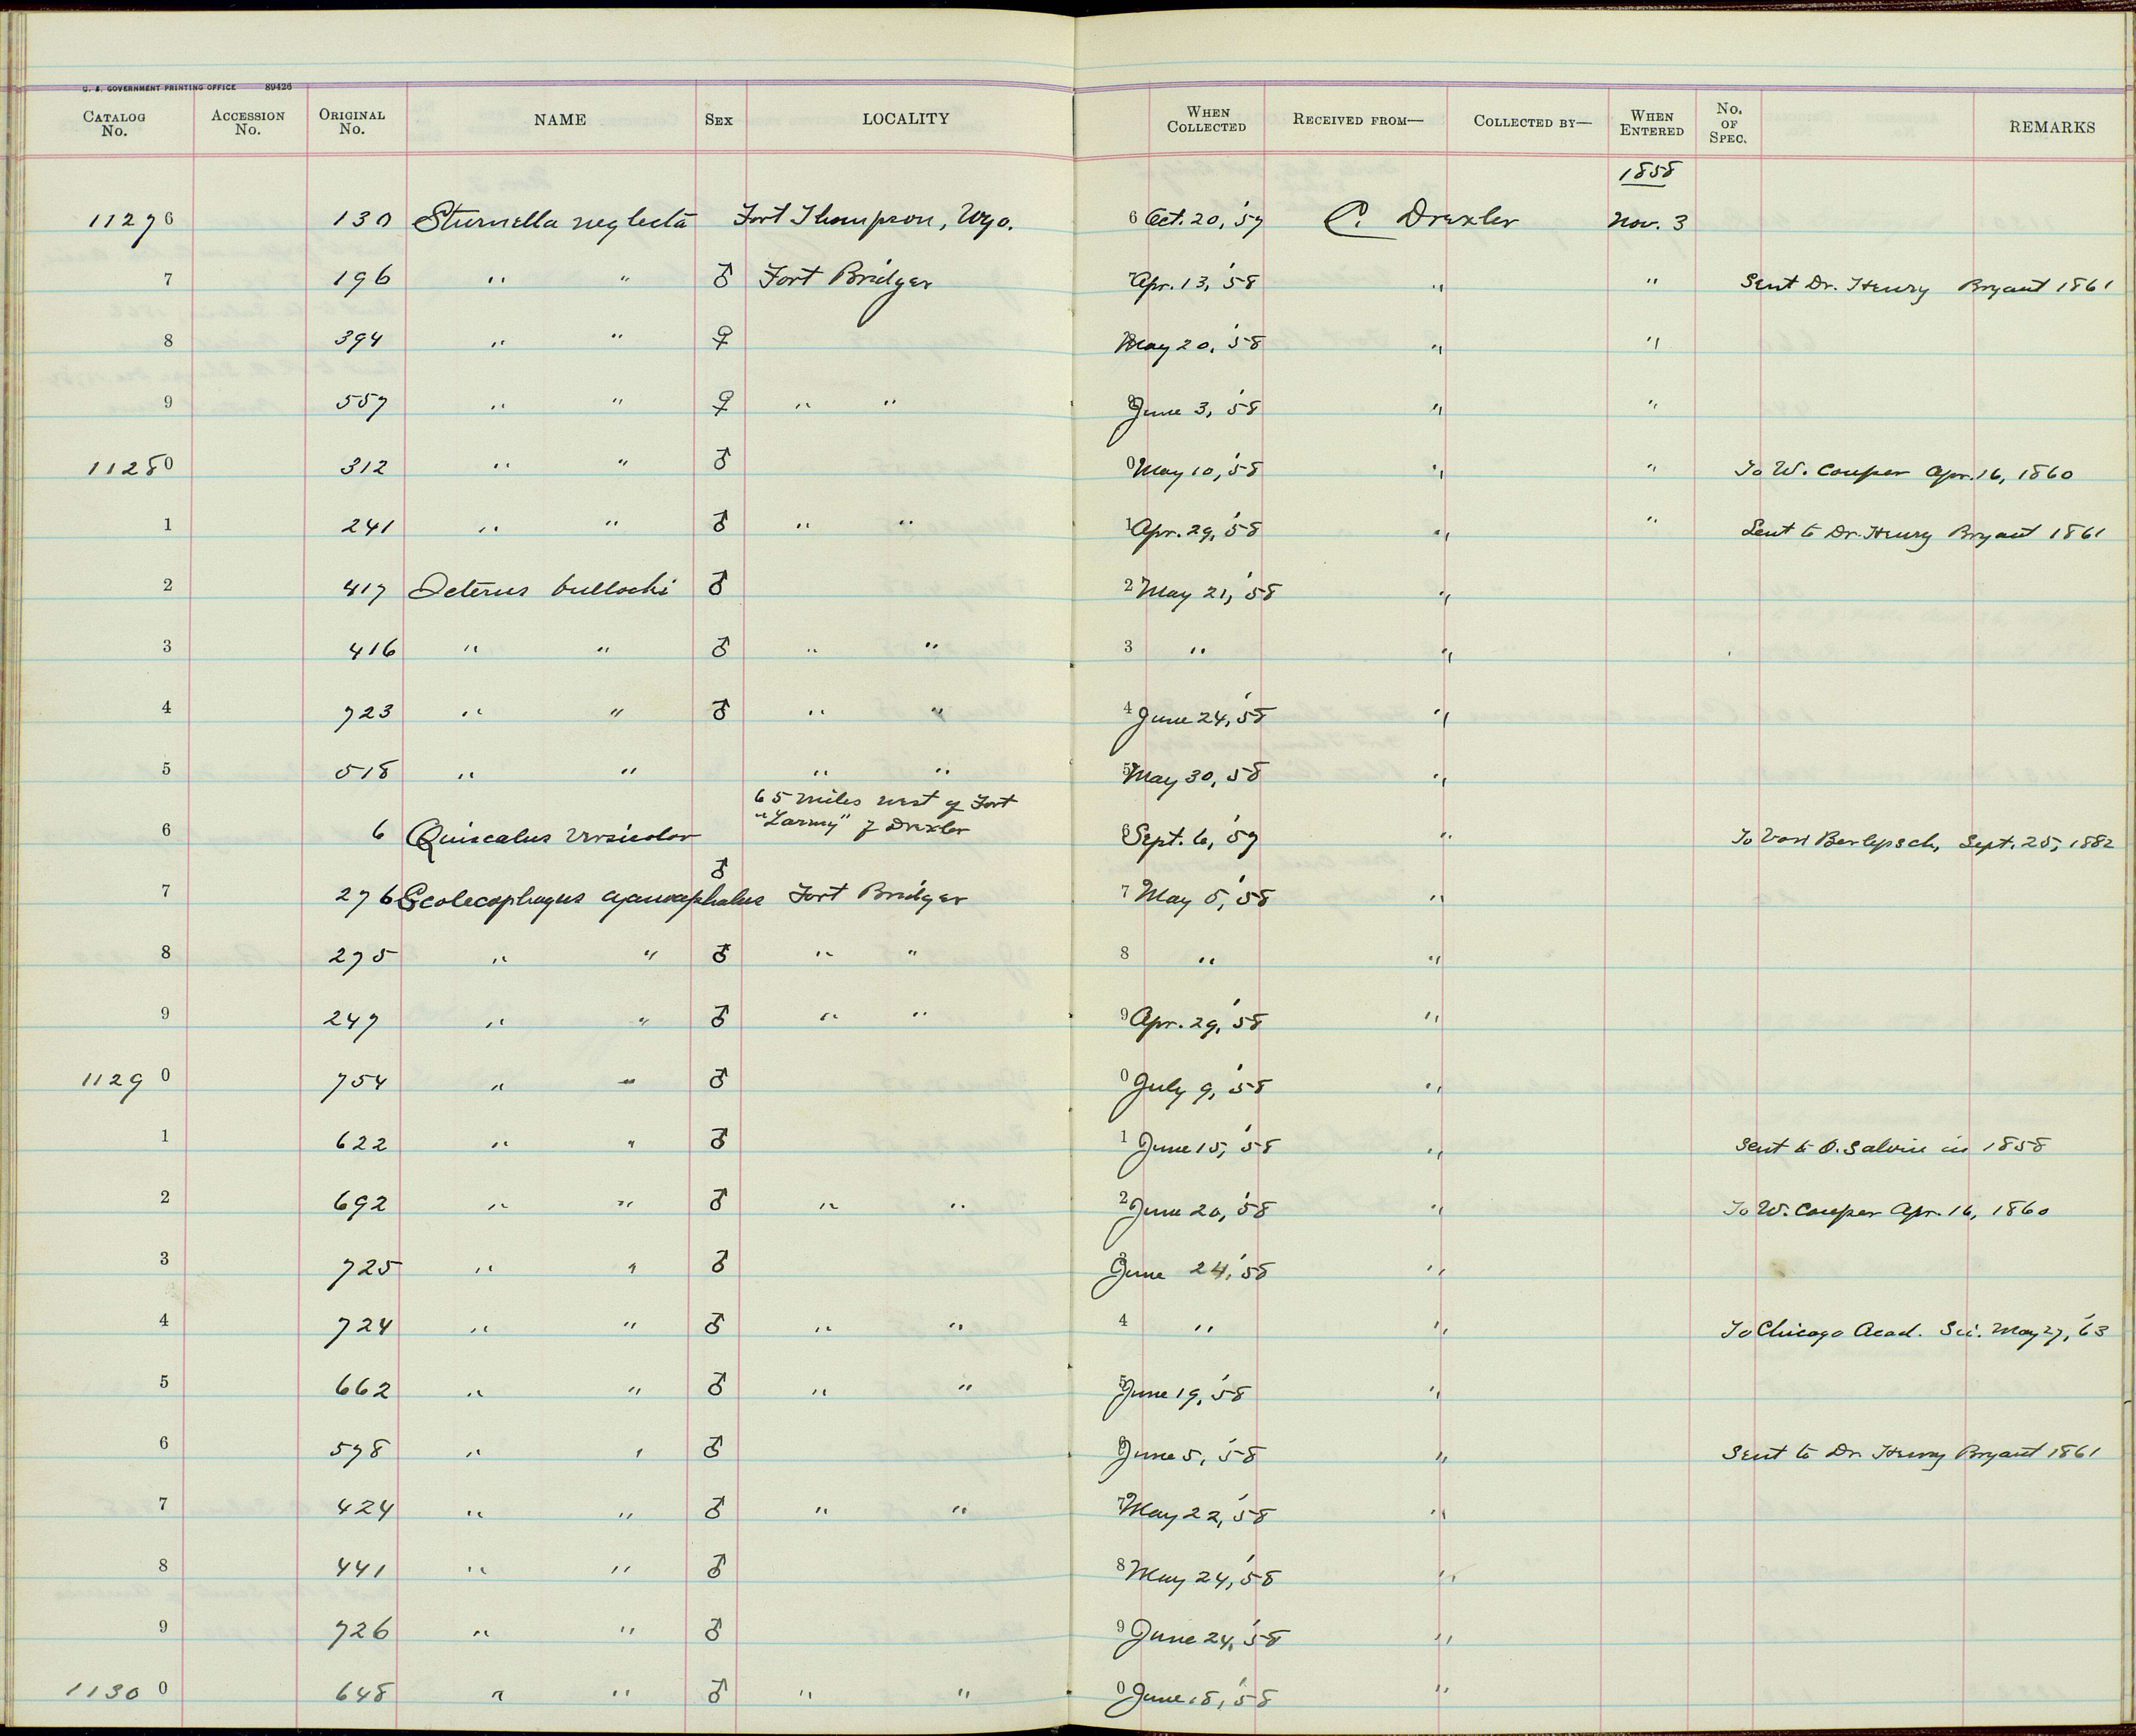 U. S. GOVERNMENT PRINTING OFFICE 89426
CATALOG No. ACCESSION No. ORIGINAL No. NAME SEX LOCALITY WHEN COLLECTED RECEIVED FROM— COLLECTED BY— WHEN ENTERED No. OF SPEC. REMARKS
1858
11276 130 Sturnella neglecta Fort Thompson, Wyo. 6 Oct. 20, '57 C. Drexler Nov. 3
7 196 " " ♂ Fort Bridger 7 Apr. 13, '58 " " Sent Dr. Henry Bryant 1861
8 394 " " ♀ May 20, '58 " "
9 557 " " ♀ " " June 3, '58 " "
11280 312 " " ♂ 0 May 10, '58 " " To W. Couper Apr. 16, 1860
1 241 " " ♂ " " 1 Apr. 29, '58 " " Sent to Dr. Henry Bryant 1861
2 417 Icterus bullocki ♂ 2 May 21, '58 "
3 416 " " ♂ " " 3 " "
4 723 " " ♂ " " 4 June 24, '58 "
5 518 " " " " 5 May 30, 58 "
65 miles west of Fort
6 6 Quiscalus versicolor "Larmy" f Drexler 6 Sept. 6, '57 " To Von Berlepsch, Sept. 25, 1882
7 276 Scolecophagus cyanocephalus ♂ Fort Bridger 7 May 5, '58 "
8 275 " " ♂ " " 8 " "
9 247 " " ♂ " " 9 Apr. 29, '58 "
11290 754 " " ♂ 0 July 9, '58 "
1 622 " " ♂ 1 June 15, '58 " Sent to O. Salvin in 1858
2 692 " " ♂ " " 2 June 20, '58 " To W. Couper Apr. 16, 1860
3 725 " " ♂ 3 June 24, '58 "
4 724 " " ♂ " " 4 " " To Chicago Acad. Sci. May 27, '63
5 662 " " ♂ " " 5 June 19, '58 "
6 578 " " ♂ 6 June 5, '58 " Sent to Dr. Henry Bryant 1861
7 424 " " ♂ " " 7 May 22, '58 "
8 441 " " ♂ 8 May 24, '58 "
9 726 " " ♂ 9 June 24, '58 "
11300 648 " " ♂ " " 0 June 18, '58 "